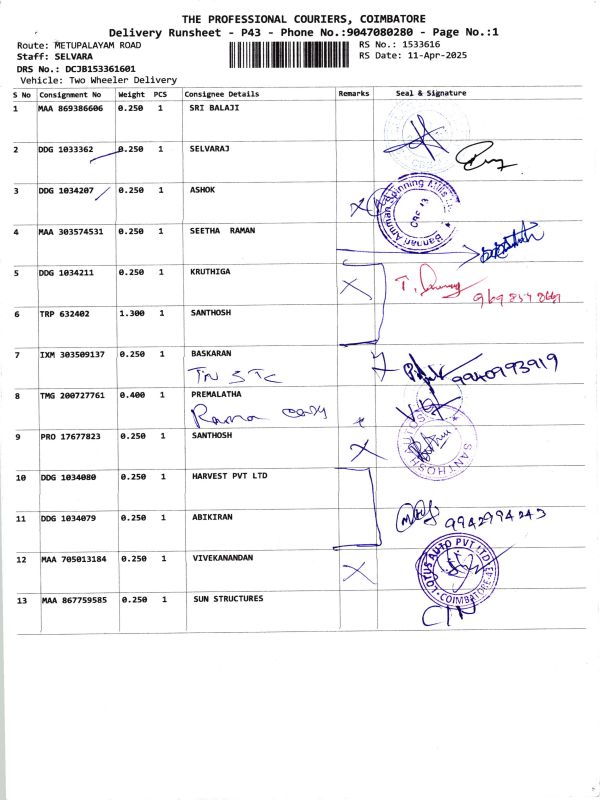 THE PROFESSIONAL COURIERS, COIMBATORE
Delivery Runsheet - P43 - Phone No.:9047080280 - Page No.:1
Route: METUPALAYAM ROAD RS No.: 1533616
Staff: SELVARA RS Date: 11-Apr-2025
DRS No.: DCJB153361601
Vehicle: Two Wheeler Delivery
S No Consignment No Weight PCS Consignee Details Remarks Seal & Signature
1 MAA 869386606 0.250 1 SRI BALAJI
2 DDG 1033362 0.250 1 SELVARAJ
3 DDG 1034207 0.250 1 ASHOK
Bannari Amman Spinning Mills
4 MAA 303574531 0.250 1 SEETHA RAMAN
5 DDG 1034211 0.250 1 KRUTHIGA
6 TRP 632402 1.300 1 SANTHOSH
7 IXM 303509137 0.250 1 BASKARAN
TN STC 9940993919
8 TMG 200727761 0.400 1 PREMALATHA
Rama
9 PRO 17677823 0.250 1 SANTHOSH
SANTHOSH AUTOS
10 DDG 1034080 0.250 1 HARVEST PVT LTD
11 DDG 1034079 0.250 1 ABIKIRAN 9942994243
12 MAA 705013184 0.250 1 VIVEKANANDAN
LOTUS AUTO PVT LTD
COIMBATORE-43
13 MAA 867759585 0.250 1 SUN STRUCTURES